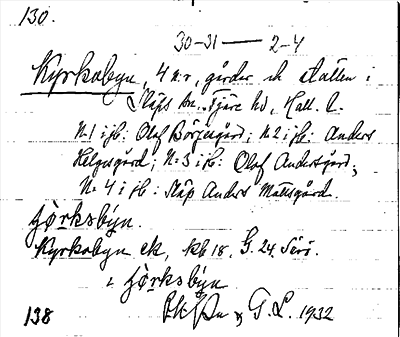 130.
30-31 — 2-4
Kyrkobyn, 4 n:r, gårdar ok ställen i
Släps sn. Fjäre hd, Hall. l.
N:1 i jb: Olof Börjesgård; N:2 i jb: Anders
Helgesgård; N:3 i jb: Olof Andersgård;
N:4 i jb: Släp Anders Mattsgård.
çørksby̓n.
Kyrkobyn ek, kb 18, G. 24, Särö.
çørksby̓n
G. L. 1932
138